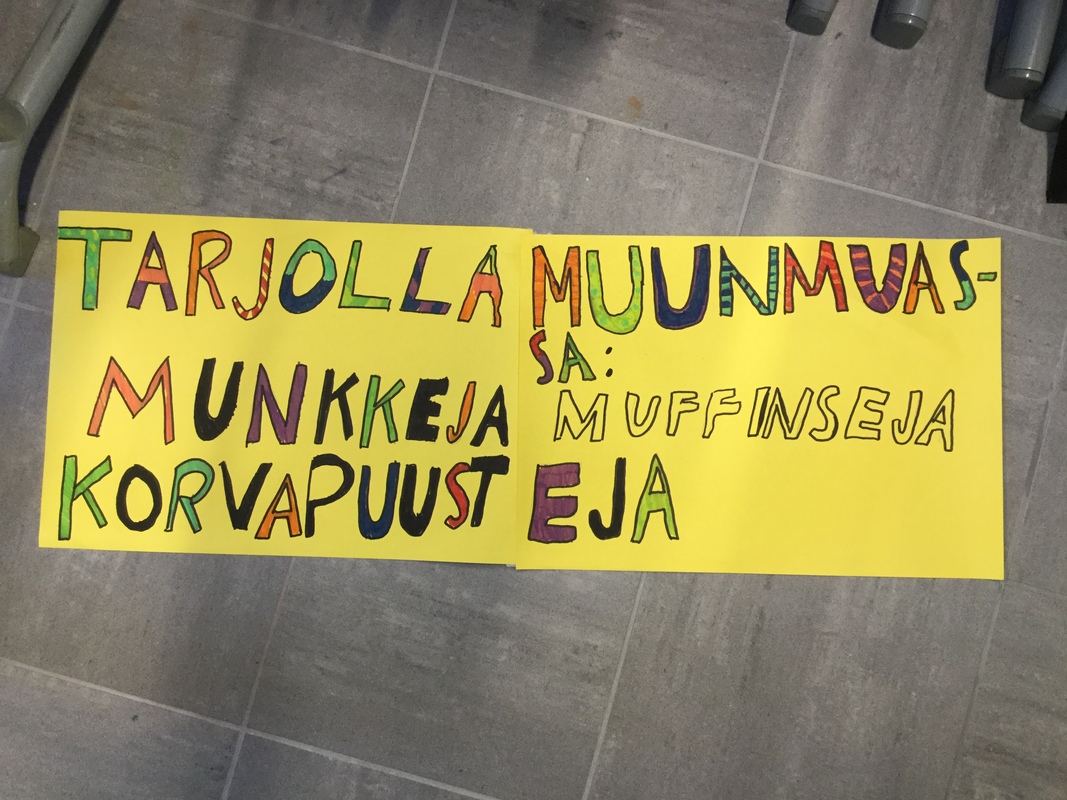 TARJOLLA MUUNMUAS-
SA:
MUNKKEJA MUFFINSEJA
KORVAPUUSTEJA